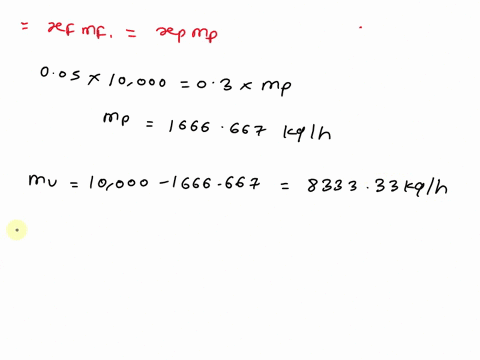 = xF mF. = xp mp
0.05 x 10,000 = 0.3 x mp
mp = 1666.667 kg/h
mv = 10,000 - 1666.667 = 8333.33 kg/h